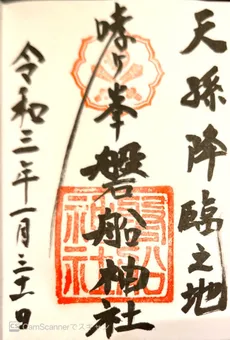 天孫降臨之地
哮ヶ峯
磐船神社
磐船
神社
令和三年一月三十一日
CamScannerでスキャン